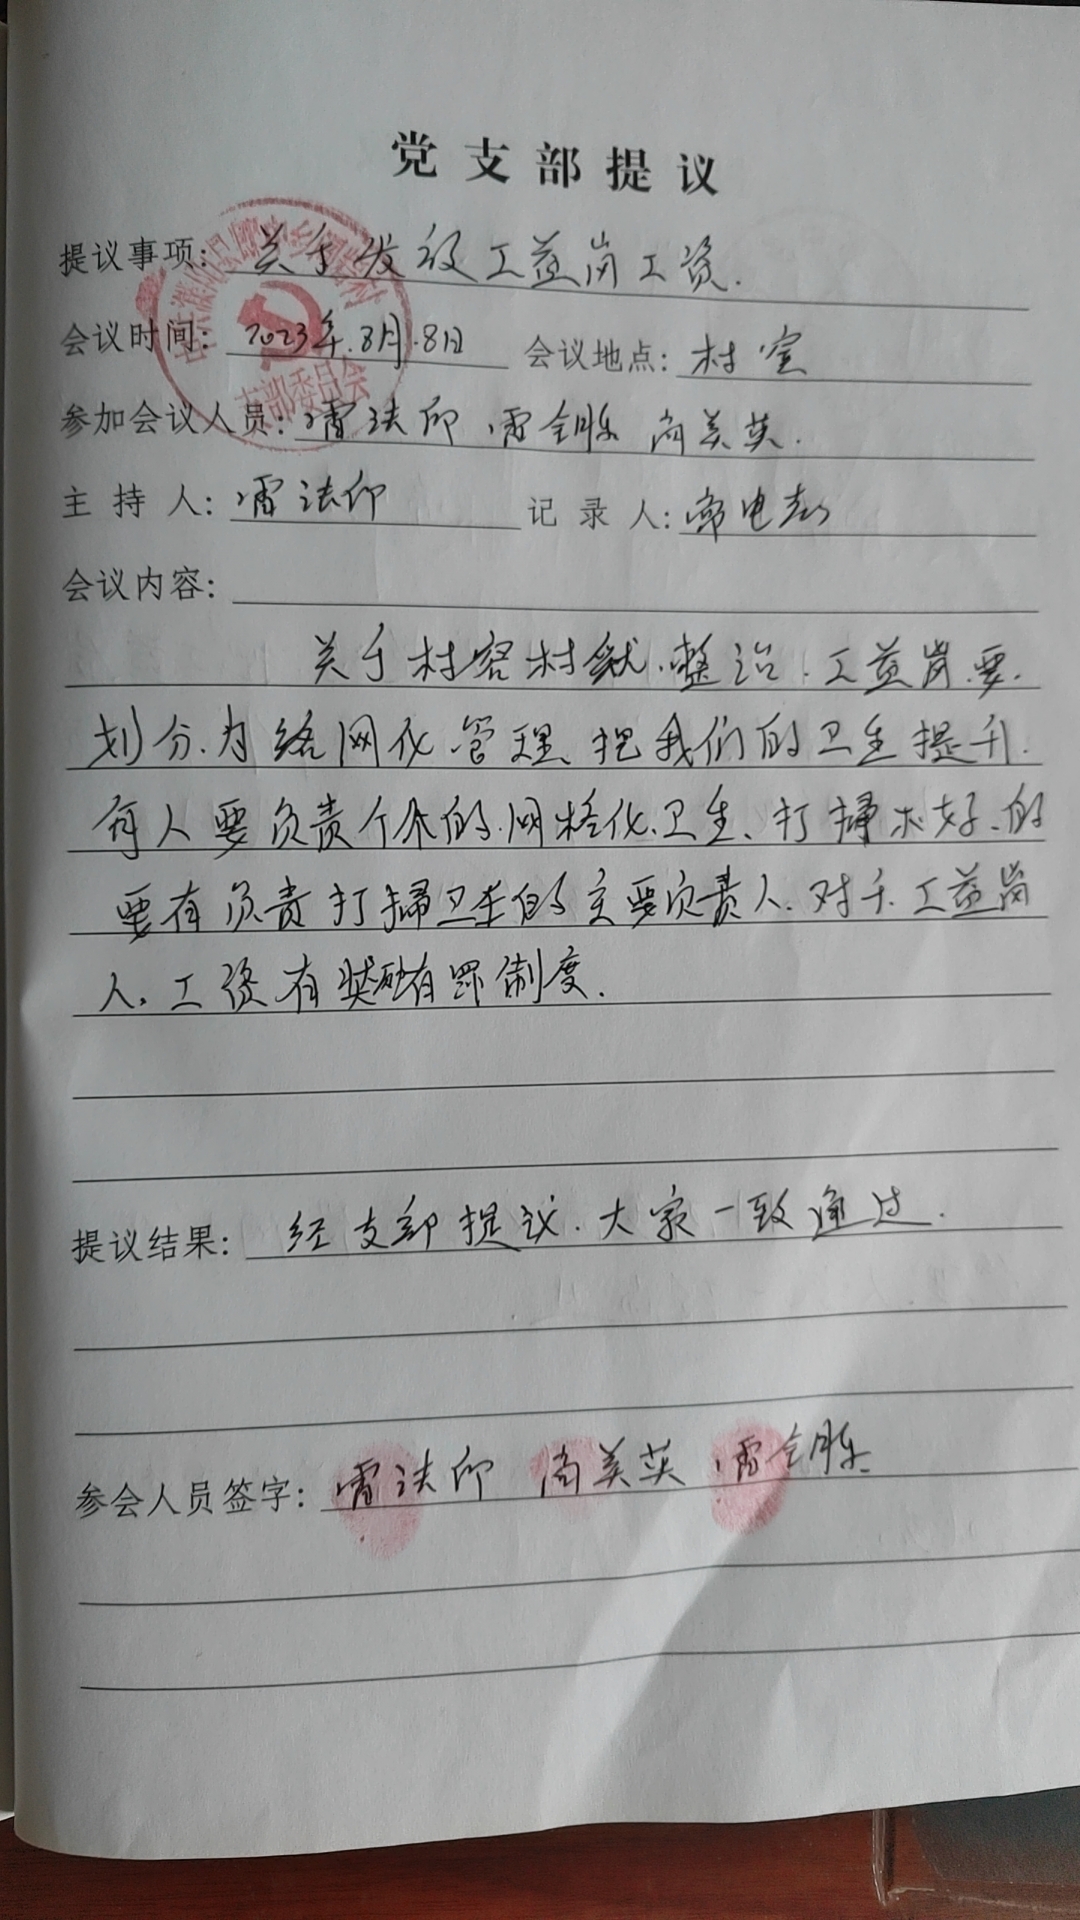 党支部提议
提议事项：关于发放工益岗工资.
会议时间：2023年.8月.8日 会议地点：村室
参加会议人员：雷法印 雷全胜 尚美英.
主持人：雷法印 记录人：
会议内容：
关于村容村貌.整治.工益岗.要.
划分.为络网化管理、把我们的卫生提升.
每人要负责个体的.网格化.卫生、打掃不好、的
要有负责打掃卫生的主要负责人.对于.工益岗
人、工资有奖励有罚制度.
提议结果：经支部提议.大家一致通过.
参会人员签字：雷法印 尚美英 雷全胜
支部委员会